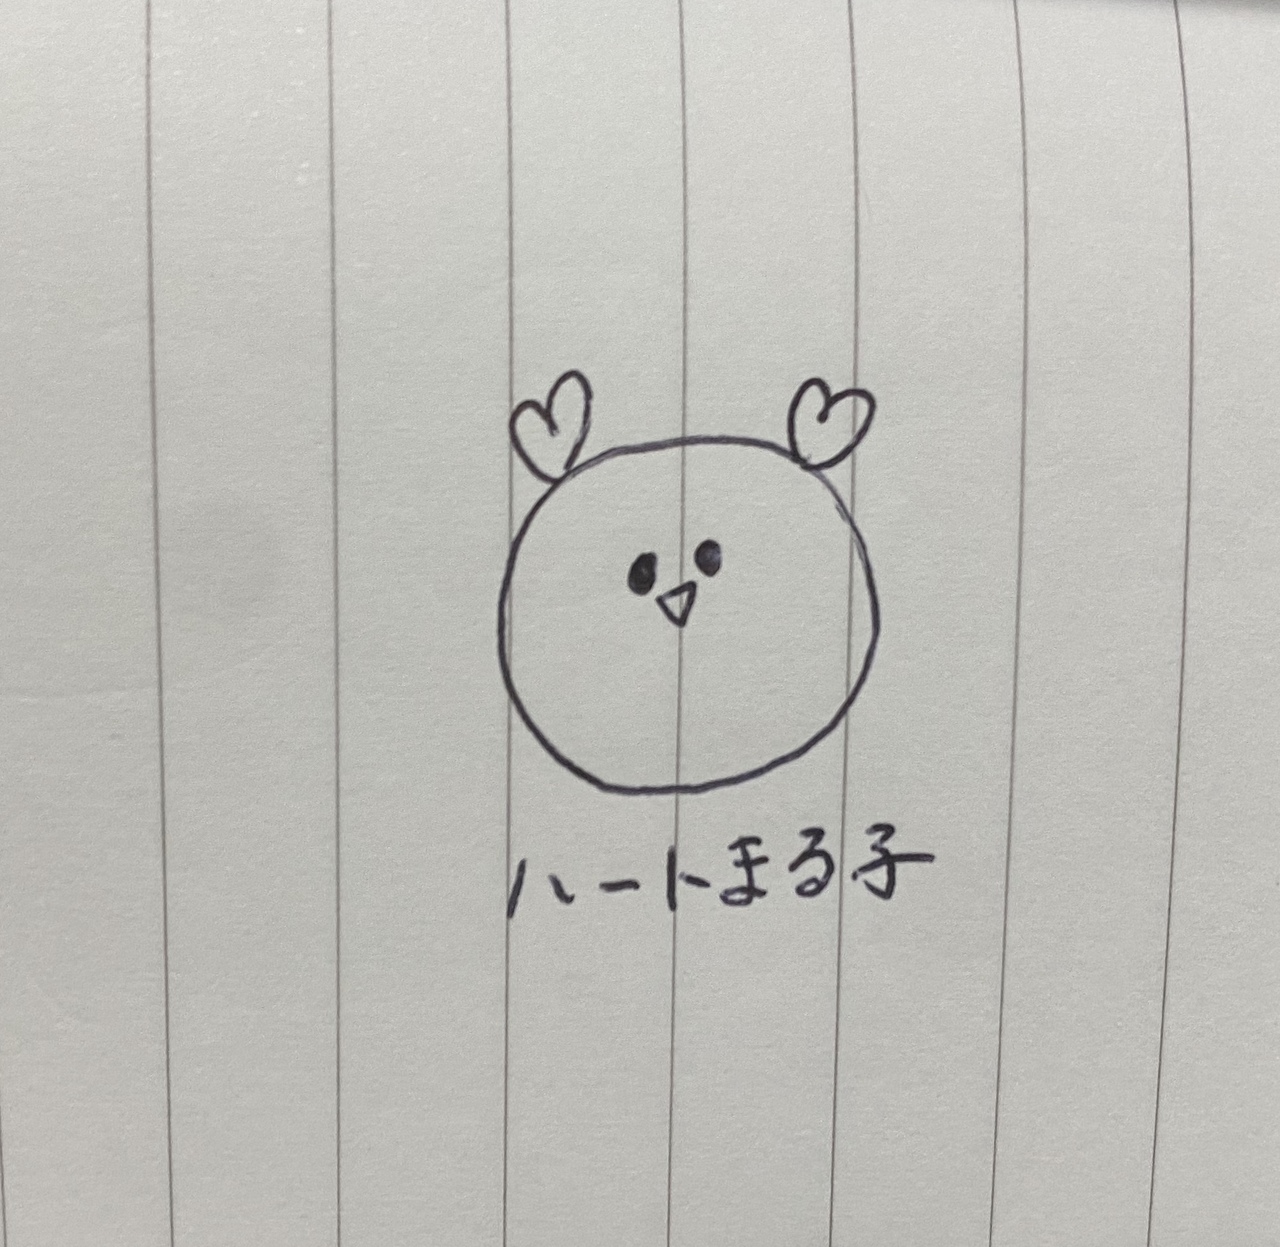 ハートまる子